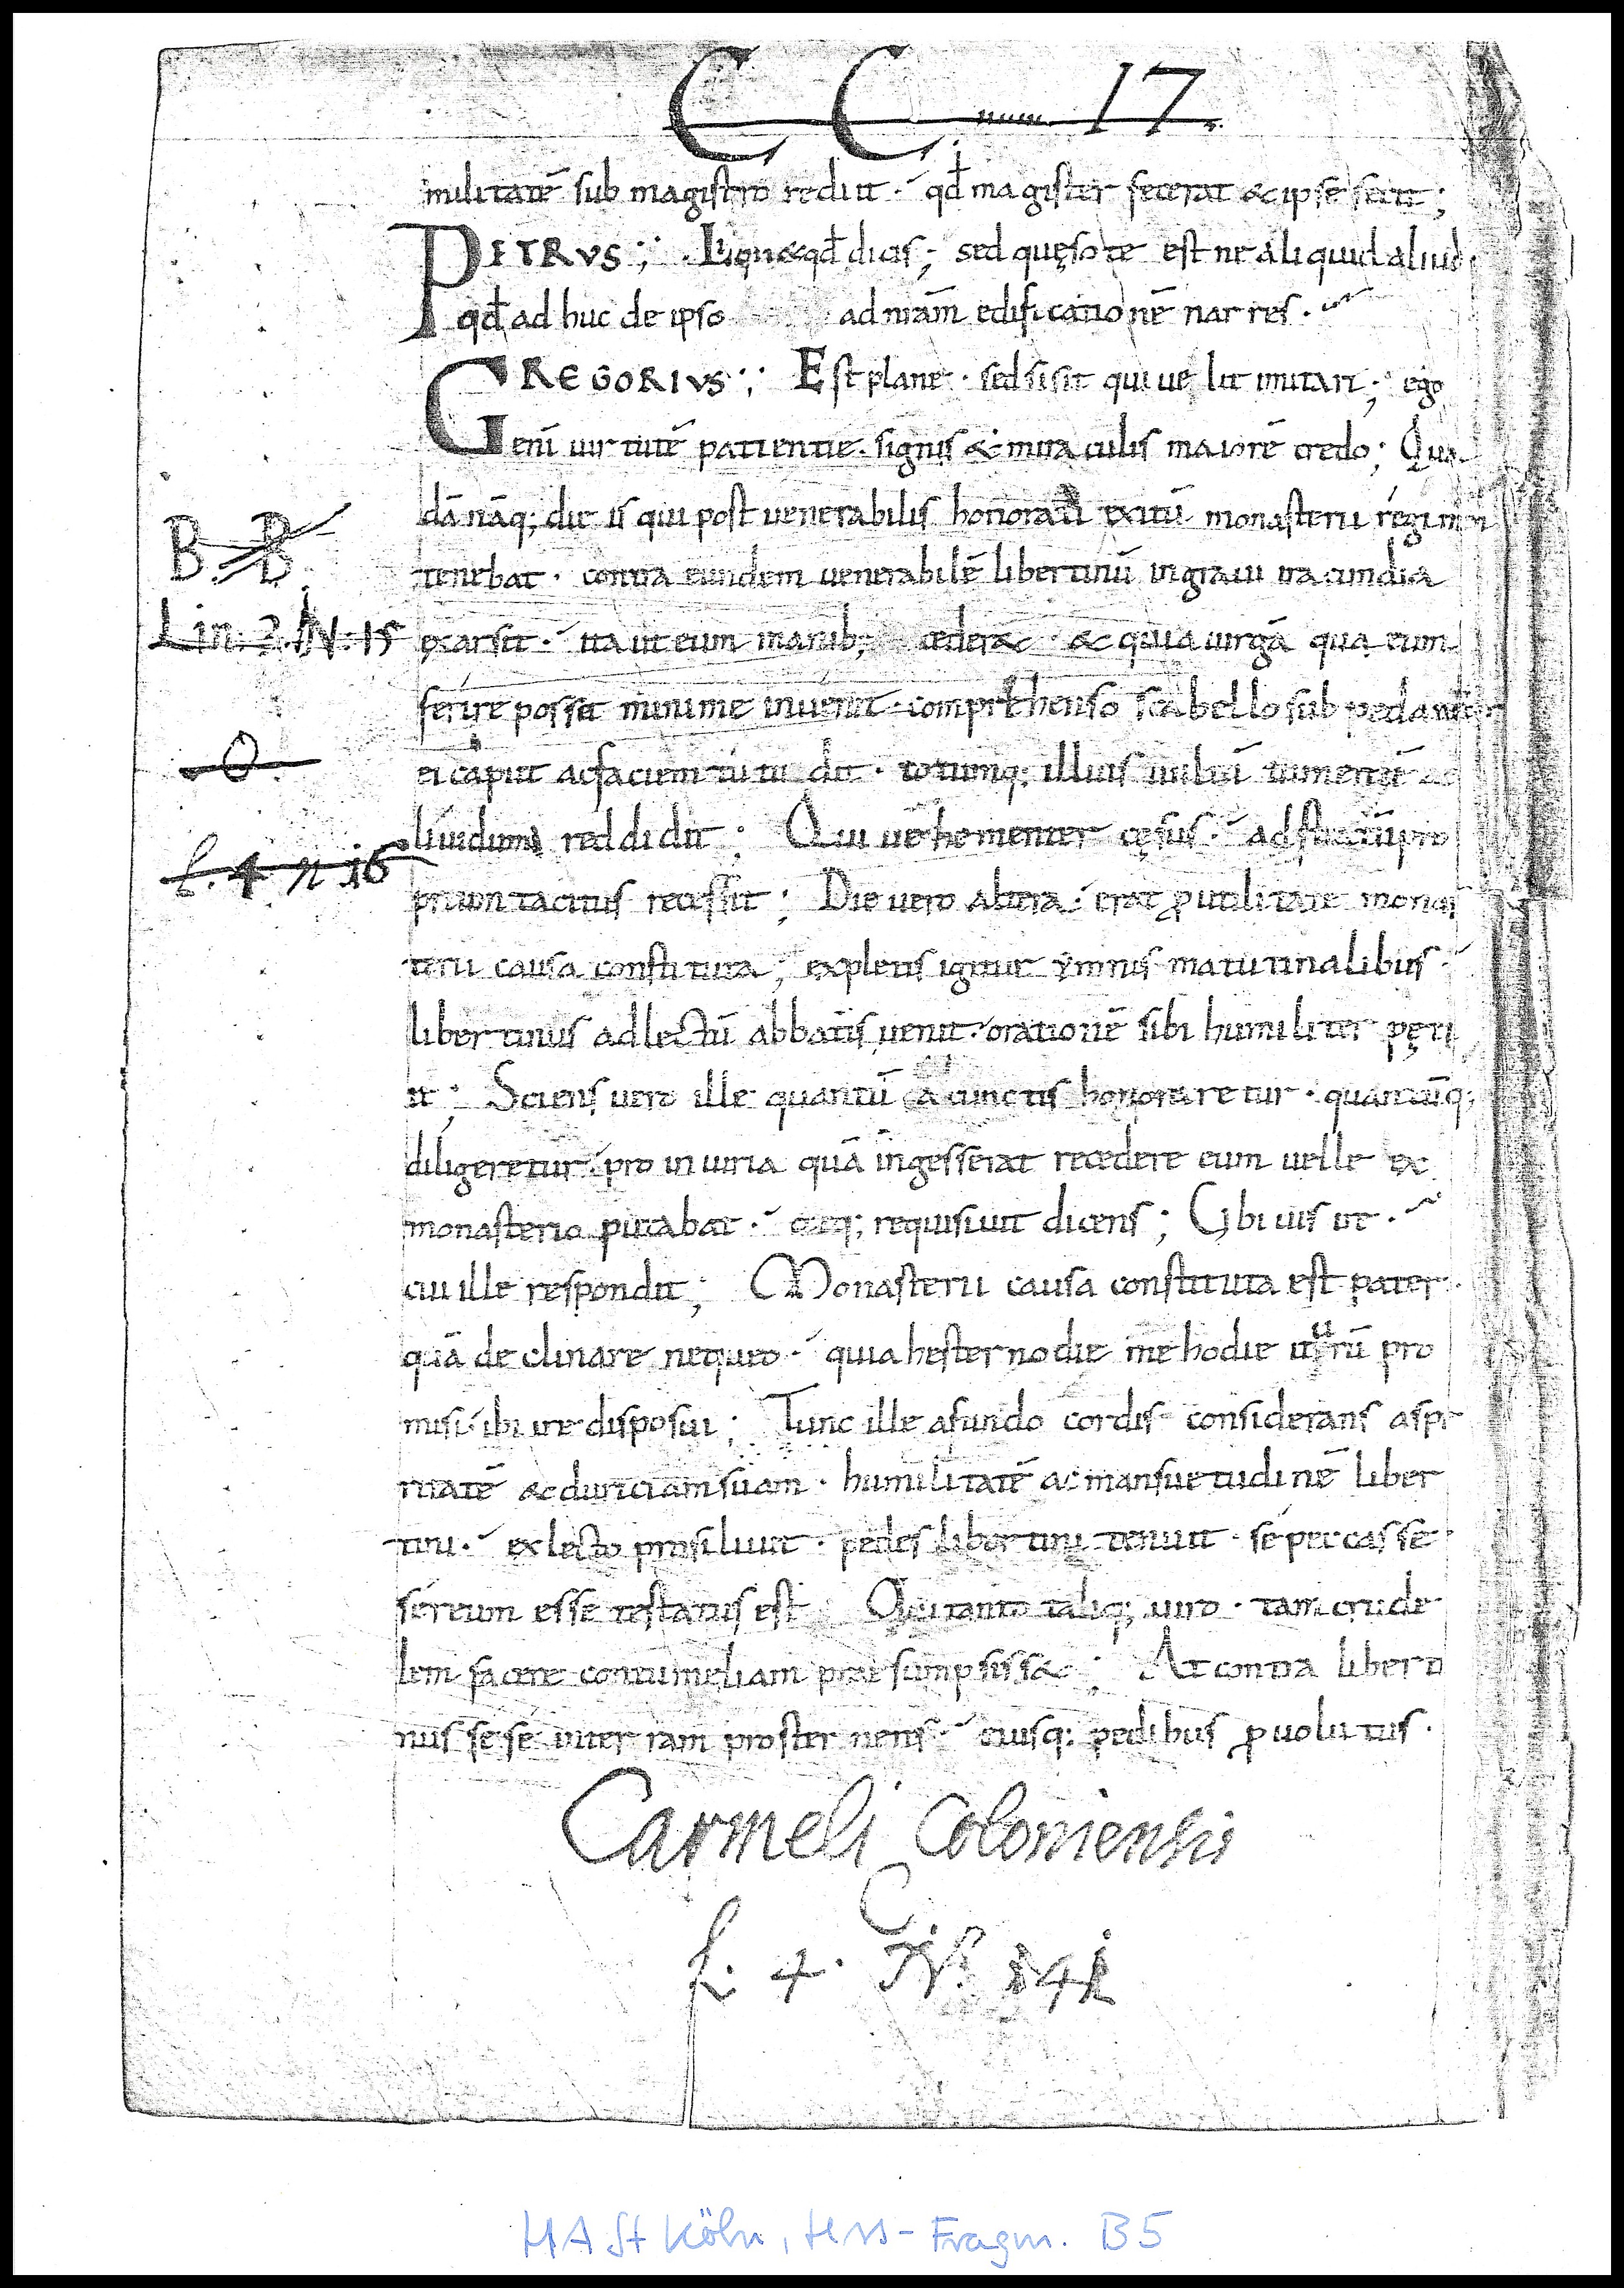 C C num. 17.
militatē sub magistro rediit · qđ magister fecerat & ipse fecit ;
PETRVS ; Liqu& qđ dicis ; sed quęso te est ne aliquid aliud
qđ ad huc de ipso ad nrām edificationē narres .
GREGORIVS ; Est plane · sed si sit qui uelit imitari ; ego
enī uirtutē patientie · signis & miraculis maiorē credo ; Qua
dā nāq; die is qui post uenerabilis honorati exitū monasterii regimen
tenebat · contra eundem uenerabilē libertinū in graui iracundia
exarsit · ita ut eum manib; ceder& · & quia uirgā qua eum
ferire poss& minime inuenit · comprehenso scabello sub pedaneo
ei caput ac faciem tutudit · totumq; illius uultū tumentē ac
liuidum reddidit ; Qui uehementer cęsus · ad stratū pro
prium tacitus recessit ; Die uero altera · erat ꝓ utilitate monas
terii causa constituta ; expletis igitur ymnis matutinalibus
libertinus ad lectū abbatis uenit · orationē sibi humiliter peti
it ; Sciens uero ille quantū a cunctis honoraretur · quantūq;
diligeretur · pro iniuria quā ingesserat recedere eum uelle ex
monasterio putabat · eūq; requisiuit dicens ; Ubi uis ire ·
cui ille respondit ; Monasterii causa constituta est pater ·
quā declinare nequeo · quia hesterno die me hodie iturū pro
misi · ibi ire disposui ; Tunc ille a fundo cordis considerans aspe
ritatē & duriciam suam · humilitatē ac mansuetudinē liber
tini · ex lecto prosiliuit · pedes libertini tenuit · se peccasse
se reum esse testatus est Qui tanto taliq; uiro · tam crude
lem facere contumeliam praesumpsiss& ; At contra liberti
nus sese in terram prosternens · eiusq; pedibus ꝓuolutus ·
B. B
Lin. 2. N. 15
O
l. 4 n 16
Carmeli Coloniensis
C
L. 4. N°. 141
HASt Köln, Hss-Fragm. B5